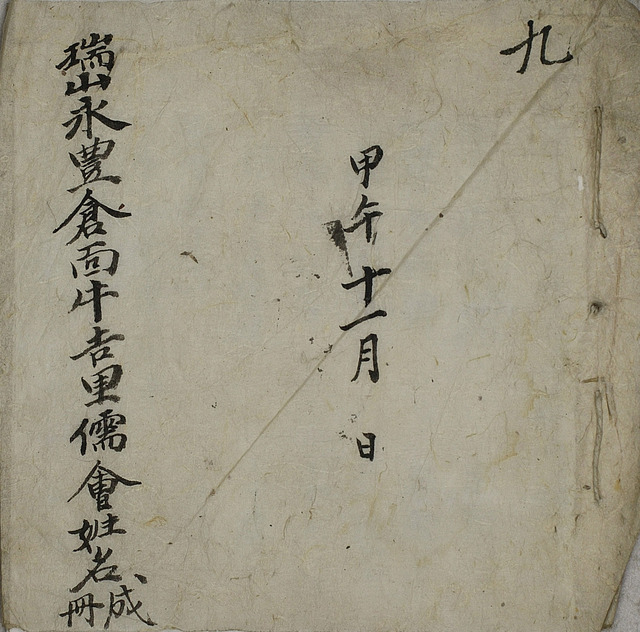 九
甲午十一月 日
瑞山永豊倉面牛吉里儒會姓名成冊